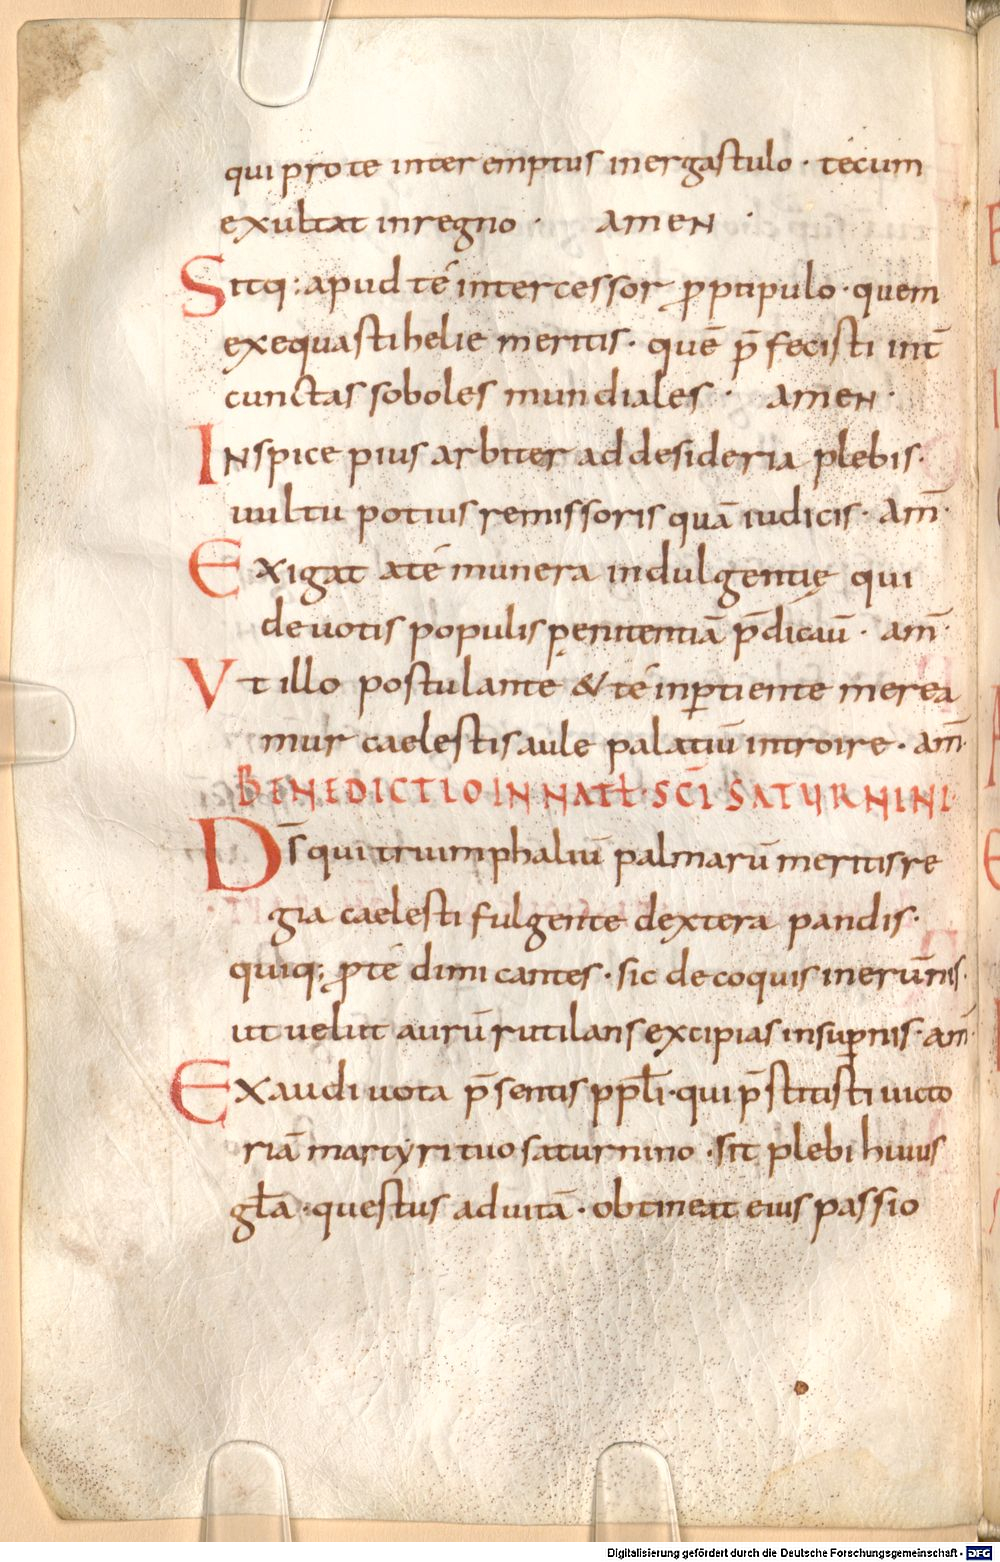 qui pro te inter emptus in ergastulo · tecum
exultat in regno · AMEN ·
Sitq: apud té intercessor ꝓ ptipulo · quem
exequasti helie meritis · quē p̄fecisti int̄
cunctas soboles mundiales · AMEN ·
INspice pius arbiter ad desideria plebis ·
uultu potius remissoris quā iudicis · Am̄ ·
Exigat a té munera indulgentię qui
deuotis populis pęnitentiā p̄dicaū · am̄ ·
Vt illo postulante & té inꝑtiente merea
mur caelestis aule palatiū introire · am̄
BENEDICTIO IN NATƚ · SC̄I SATURNINI
Ds̄ qui triumphaliū palmarū meritis re
gia caelesti fulgente dextera pandis ·
quiq; ꝓ té dimicantes · sic decoquis in erūnis ·
ut uelut aurū rutilans excipias in suꝑnis · am̄
Exaudi uota p̄sentis ppƚi · qui p̄stitisti uicto
riā martyri tuo saturnino · sit plebi huius
gƚa · questus ad uitā · obtineat eius passio
Digitalisierung gefördert durch die Deutsche Forschungsgemeinschaft - DFG